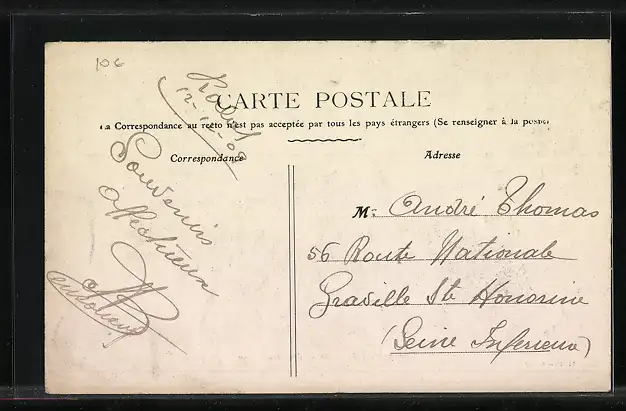 106
CARTE POSTALE
La Correspondance au recto n'est pas acceptée par tous les pays étrangers (Se renseigner à la poste)
Correspondance
Adresse
12-
Souvenirs
affectueux
Mr André Thomas
56 Route Nationale
Graville Ste Honorine
(Seine Inferieure)